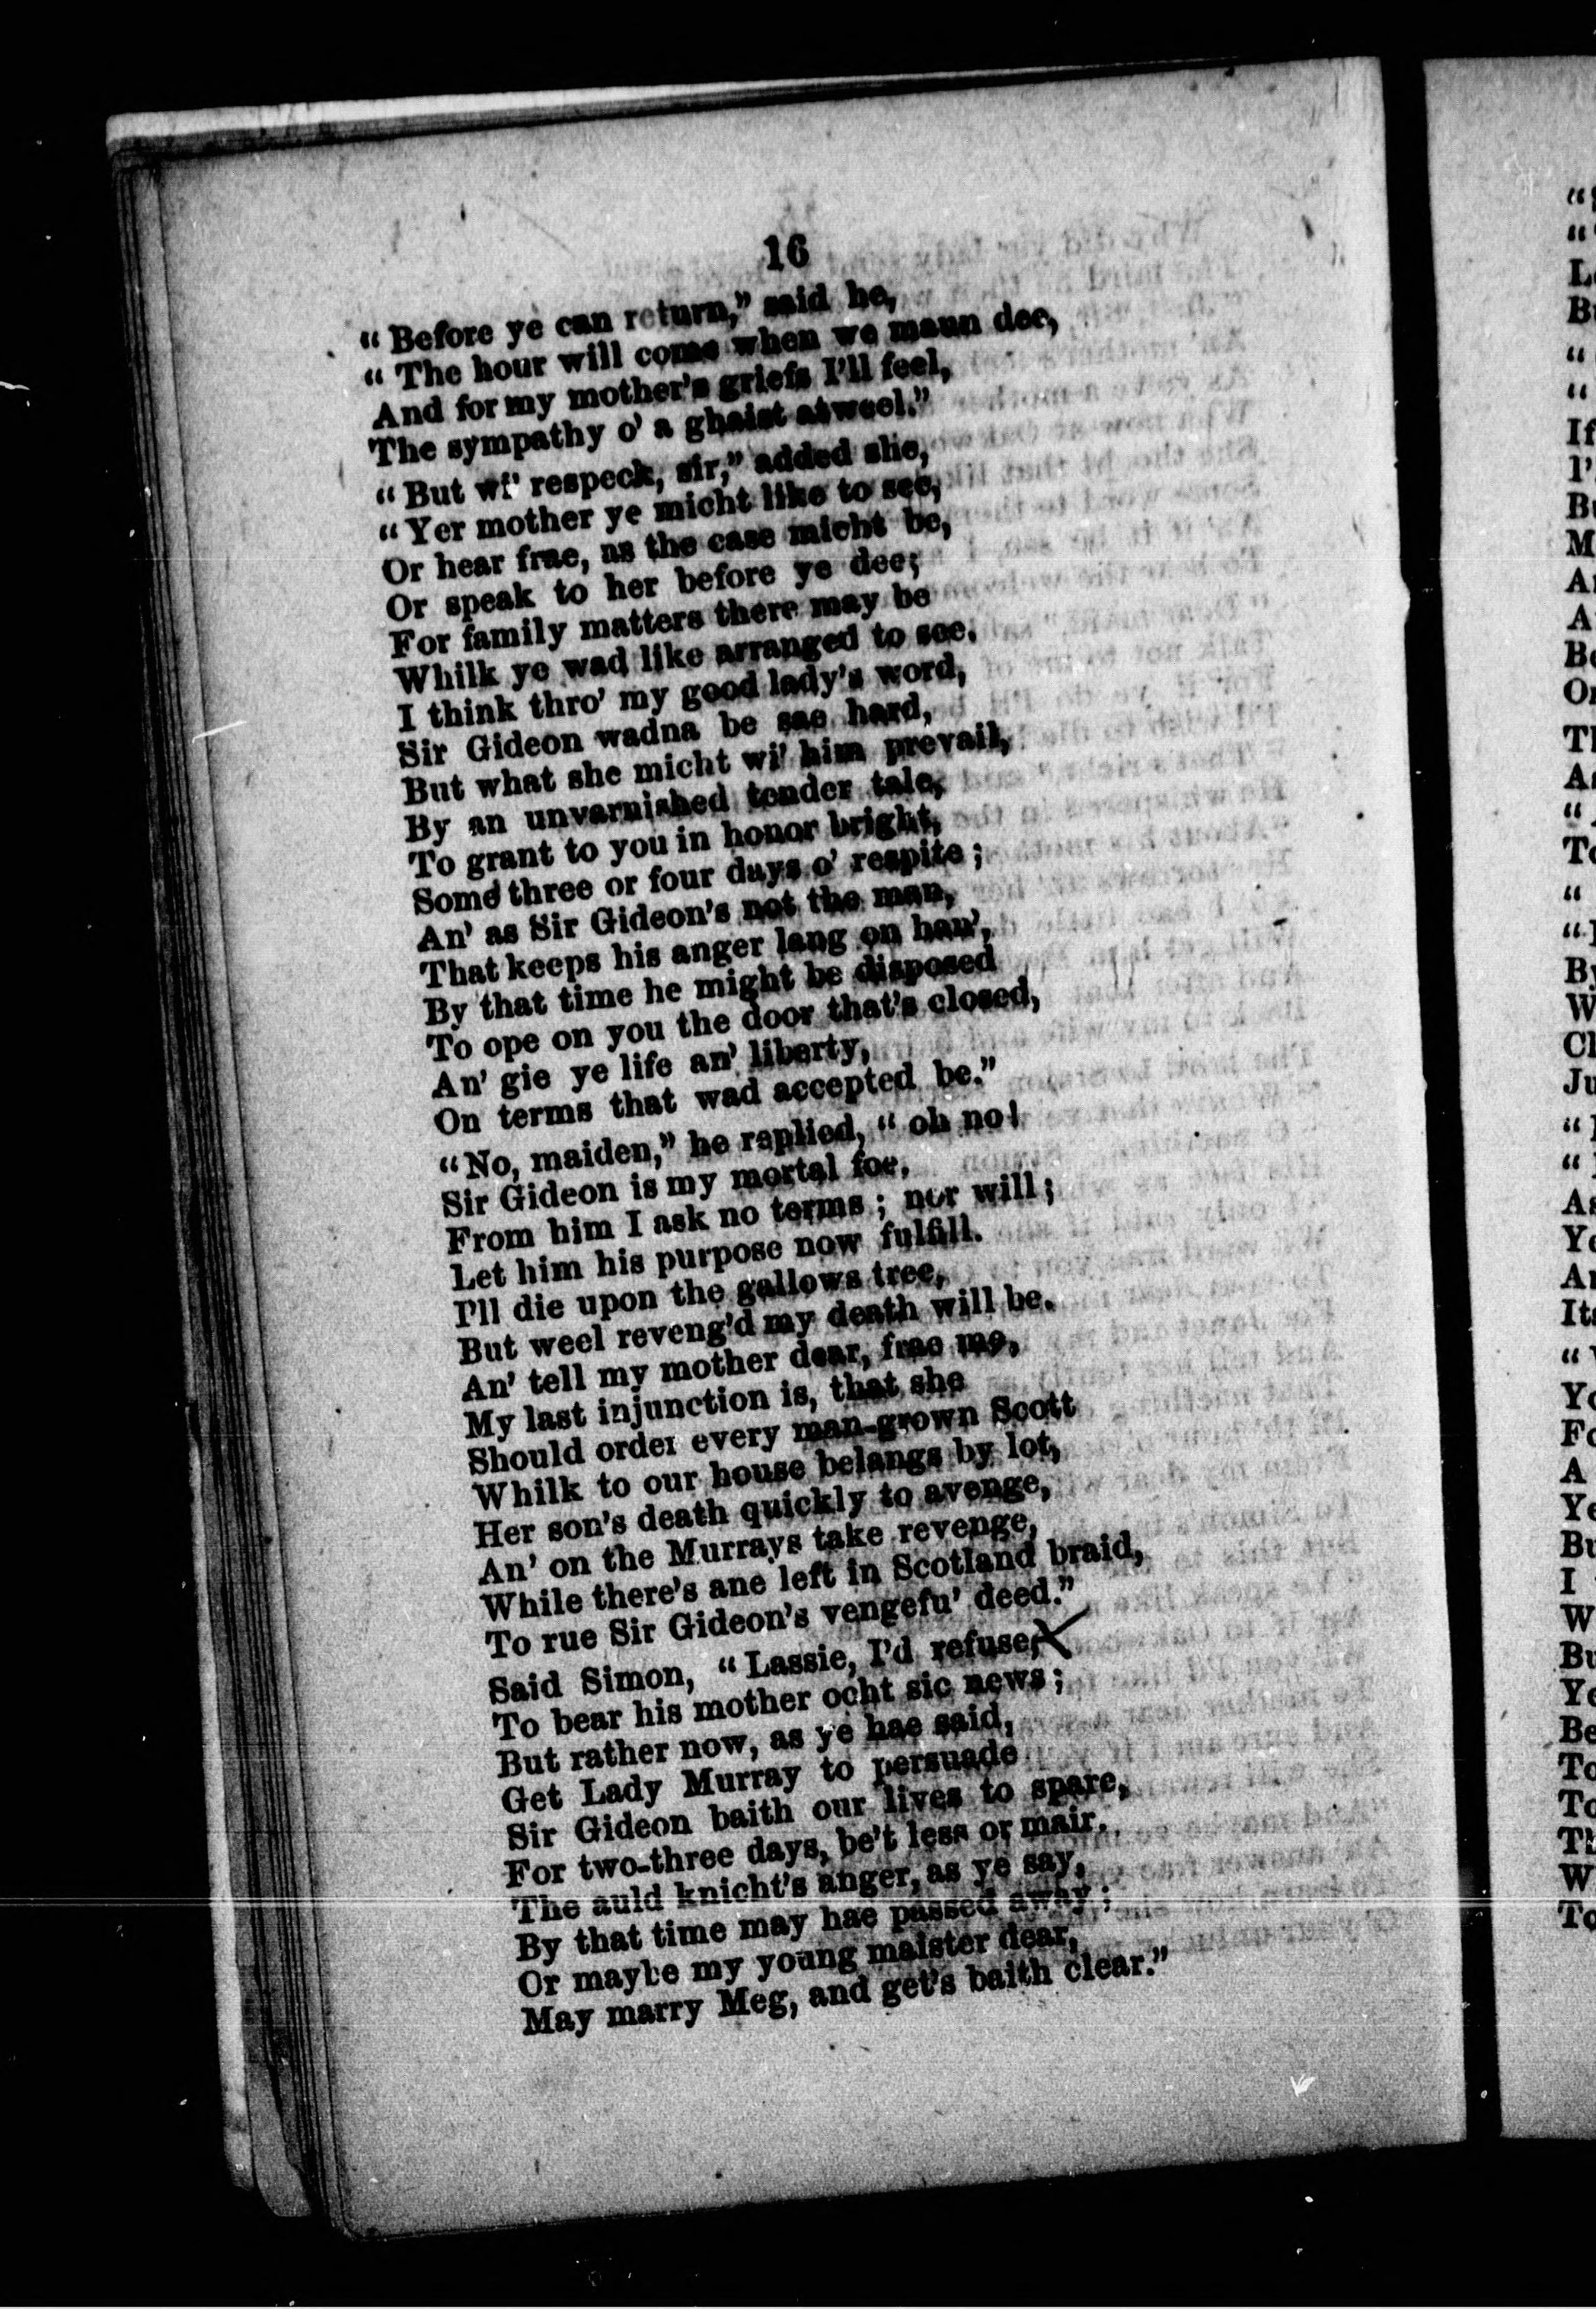 16
“Before ye can return,” said he,
“The hour will come when we maun dee,
And for my mother's griefs I'll feel,
The sympathy o' a ghaist atweel.”
“But wi' respeck, sir,” added she,
“Yer mother ye micht like to see,
Or hear frae, as the case micht be,
Or speak to her before ye dee;
For family matters there may be
Whilk ye wad like arranged to see.
I think thro' my good lady's word,
Sir Gideon wadna be sae hard,
But what she micht wi' him prevail,
By an unvarnished tender tale,
To grant to you in honor bright,
Some three or four days o' respite;
An' as Sir Gideon's not the man,
That keeps his anger lang on han',
By that time he might be disposed
To ope on you the door that's closed,
An' gie ye life an' liberty,
On terms that wad accepted be.”
“No, maiden,” he replied, “oh no!
Sir Gideon is my mortal foe,
From him I ask no terms; nor will;
Let him his purpose now fulfill.
I'll die upon the gallows tree,
But weel reveng'd my death will be.
An' tell my mother dear, frae me,
My last injunction is, that she
Should order every man-grown Scott
Whilk to our house belangs by lot,
Her son's death quickly to avenge,
An' on the Murrays take revenge,
While there's ane left in Scotland braid,
To rue Sir Gideon's vengefu' deed.”
Said Simon, “Lassie, I'd refuse,
To bear his mother ocht sic news;
But rather now, as ye hae said,
Get Lady Murray to persuade
Sir Gideon baith our lives to spare,
For two-three days, be't less or mair.
The auld knicht's anger, as ye say,
By that time may hae passed away;
Or maybe my young maister dear,
May marry Meg, and get's baith clear.”